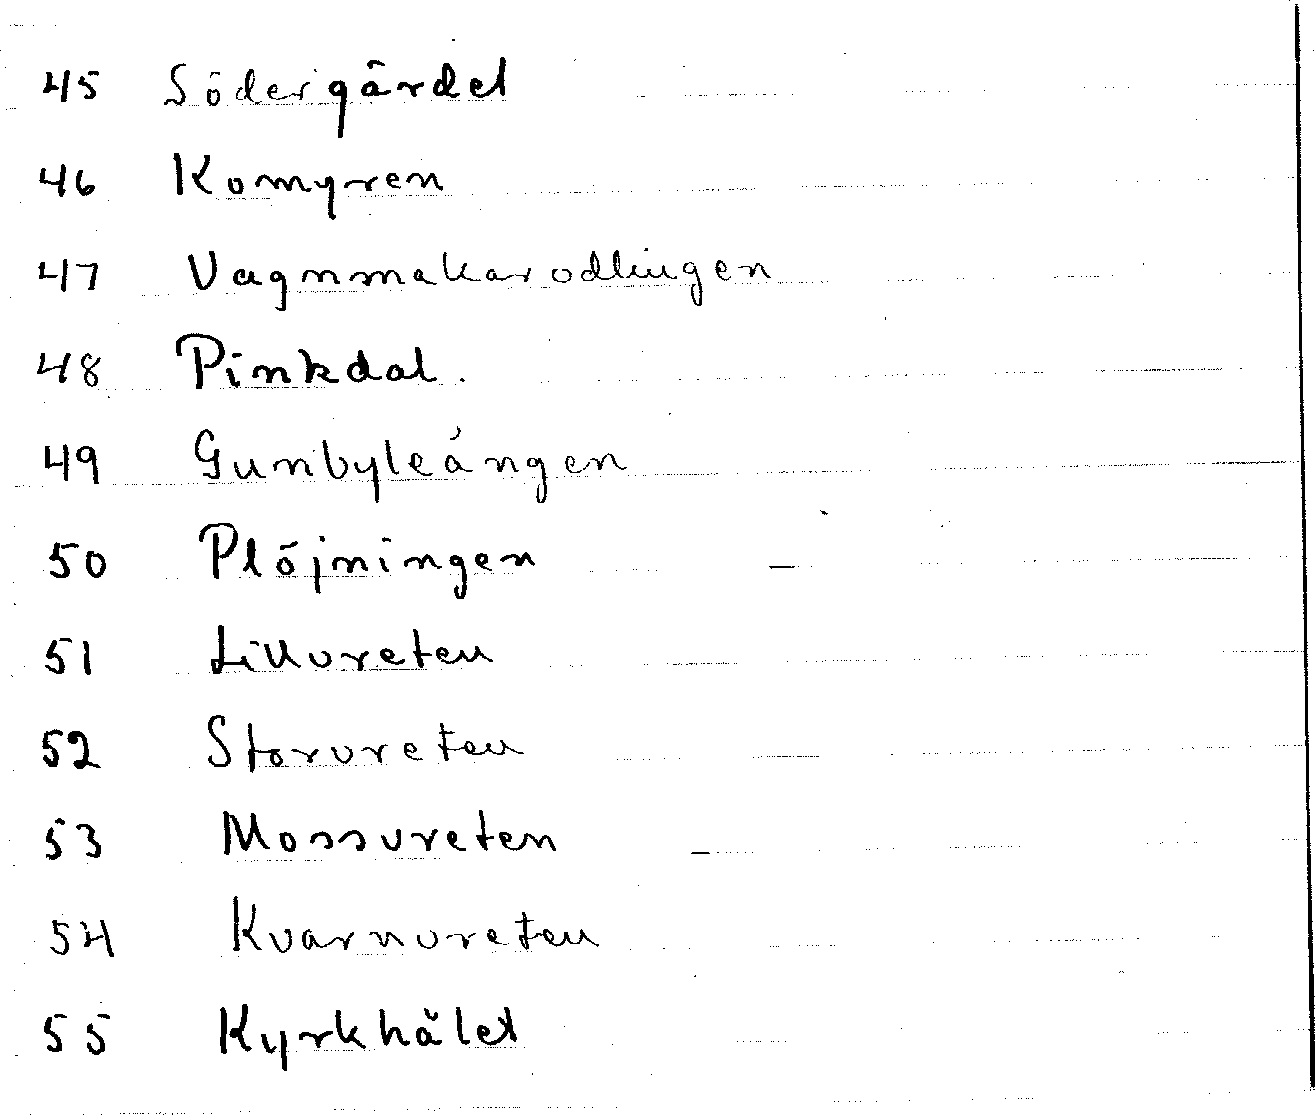 45 Södergärdet
46 Komyren
47 Vagnmakarodlingen
48 Pinkdal.
49 Gunbyleängen
50 Plöjningen
51 Lillvreten
52 Storvreten
53 Mossvreten
54 Kvarnvreten
55 Kyrkhålet